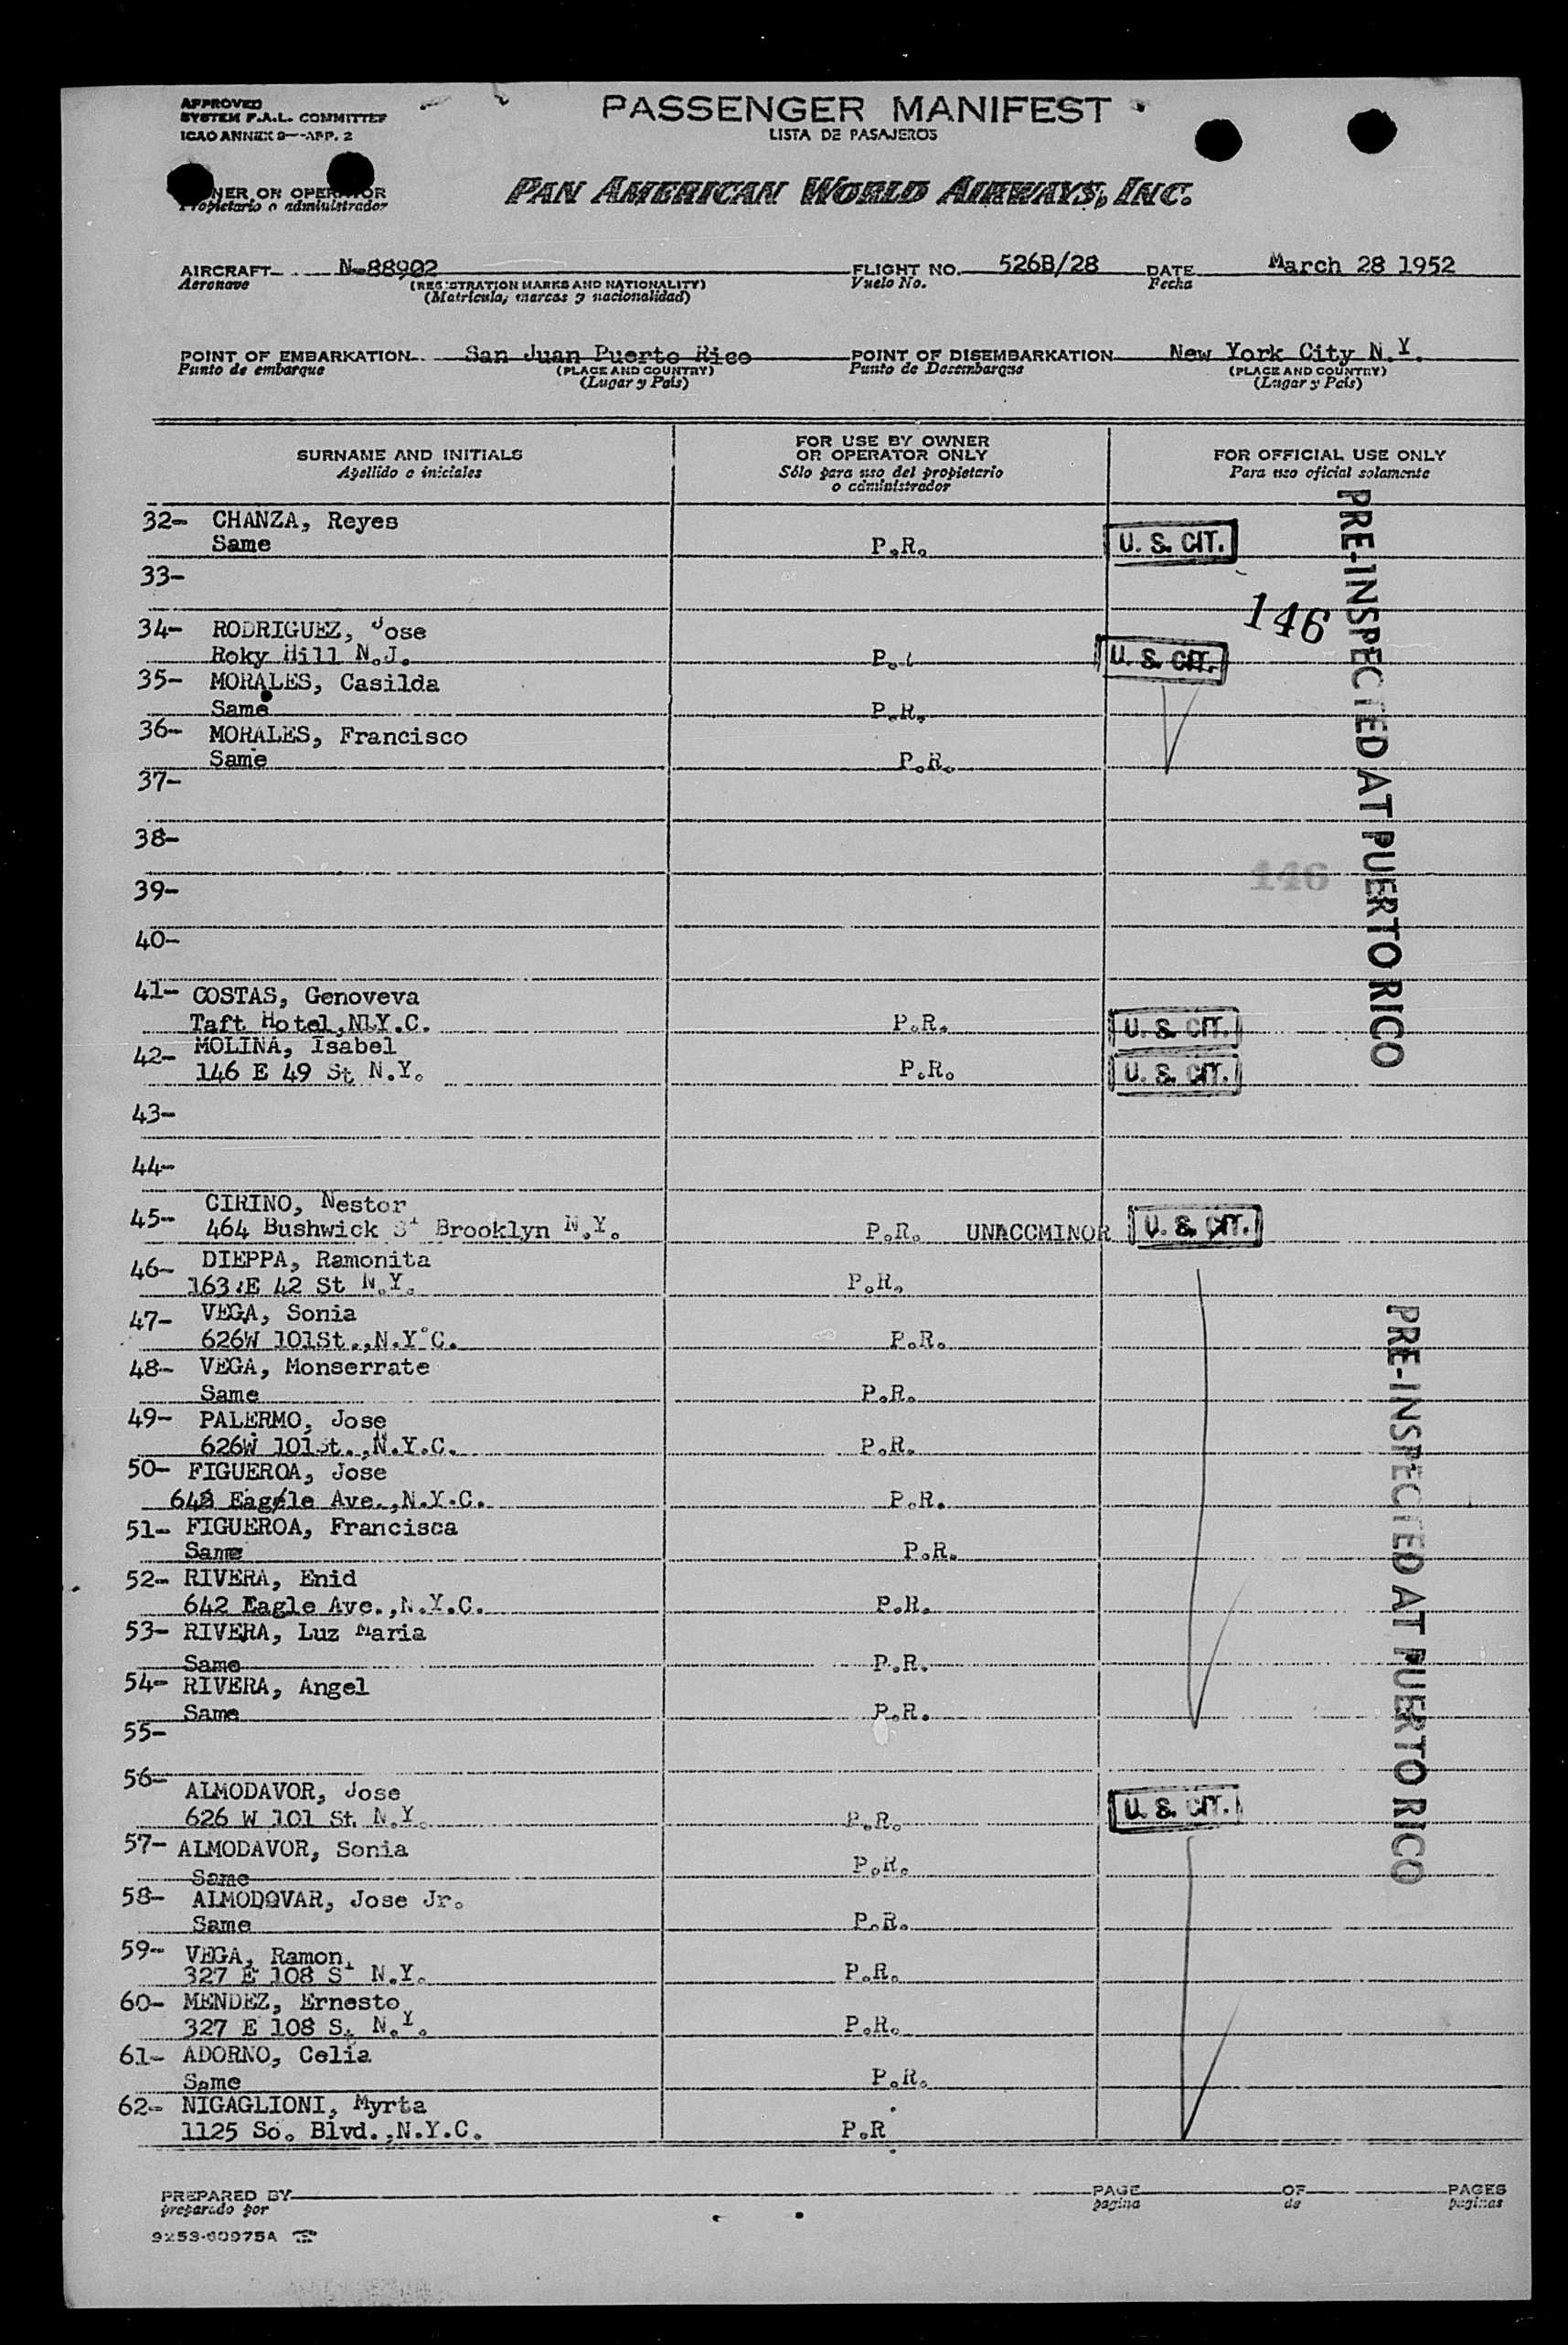 APPROVED
SYSTEM F.A.L. COMMITTEE
ICAO ANNEX 9—APP. 2
PASSENGER MANIFEST
LISTA DE PASAJEROS
NER OR OPERATOR
Propietario o administrador
PAN AMERICAN WORLD AIRWAYS, INC.
AIRCRAFT N-88902 FLIGHT NO. 526B/28 DATE March 28 1952
Aeronave (REGISTRATION MARKS AND NATIONALITY) Vuelo No. Fecha
(Matrícula, marcas y nacionalidad)
POINT OF EMBARKATION San Juan Puerto Rico POINT OF DISEMBARKATION New York City N.Y.
Punto de embarque (PLACE AND COUNTRY) Punto de Desembarque (PLACE AND COUNTRY)
(Lugar y País) (Lugar y País)
SURNAME AND INITIALS FOR USE BY OWNER OR OPERATOR ONLY FOR OFFICIAL USE ONLY
Apellido o iniciales Sólo para uso del propietario o administrador Para uso oficial solamente
32- CHANZA, Reyes
Same P.R. U. S. CIT.
33-
146
34- RODRIGUEZ, Jose
Roky Hill N.J. P. U. S. CIT.
35- MORALES, Casilda
Same P.R.
36- MORALES, Francisco
Same P.R.
37-
38-
146
39-
40-
41- COSTAS, Genoveva
Taft Hotel,NLY.C. P.R. U. S. CIT.
42- MOLINA, Isabel
146 E 49 St N.Y. P.R. U. S. CIT.
43-
44-
45- CIRINO, Nestor
464 Bushwick St Brooklyn N.Y. P.R. UNACCMINOR U. S. CIT.
46- DIEPPA, Ramonita
163 E 42 St N.Y. P.R.
47- VEGA, Sonia
626W 101St.,N.Y.C. P.R.
48- VEGA, Monserrate
Same P.R.
49- PALERMO, Jose
626W 101st.,N.Y.C. P.R.
50- FIGUEROA, Jose
642 Eagle Ave.,N.Y.C. P.R.
51- FIGUEROA, Francisca
Same P.R.
52- RIVERA, Enid
642 Eagle Ave.,N.Y.C. P.R.
53- RIVERA, Luz Maria
Same P.R.
54- RIVERA, Angel
Same P.R.
55-
56- ALMODAVOR, Jose
626 W 101 St. N.Y. P.R. U. S. CIT.
57- ALMODAVOR, Sonia
Same P.R.
58- ALMODOVAR, Jose Jr.
Same P.R.
59- VEGA, Ramon
327 E 108 St N.Y. P.R.
60- MENDEZ, Ernesto
327 E 108 S. N.Y. P.R.
61- ADORNO, Celia
Same P.R.
62- NIGAGLIONI, Myrta
1125 So. Blvd.,N.Y.C. P.R
PRE-INSPECTED AT PUERTO RICO
PRE-INSPECTED AT PUERTO RICO
PREPARED BY PAGE OF PAGES
preparado por pagina de paginas
9253-60975A